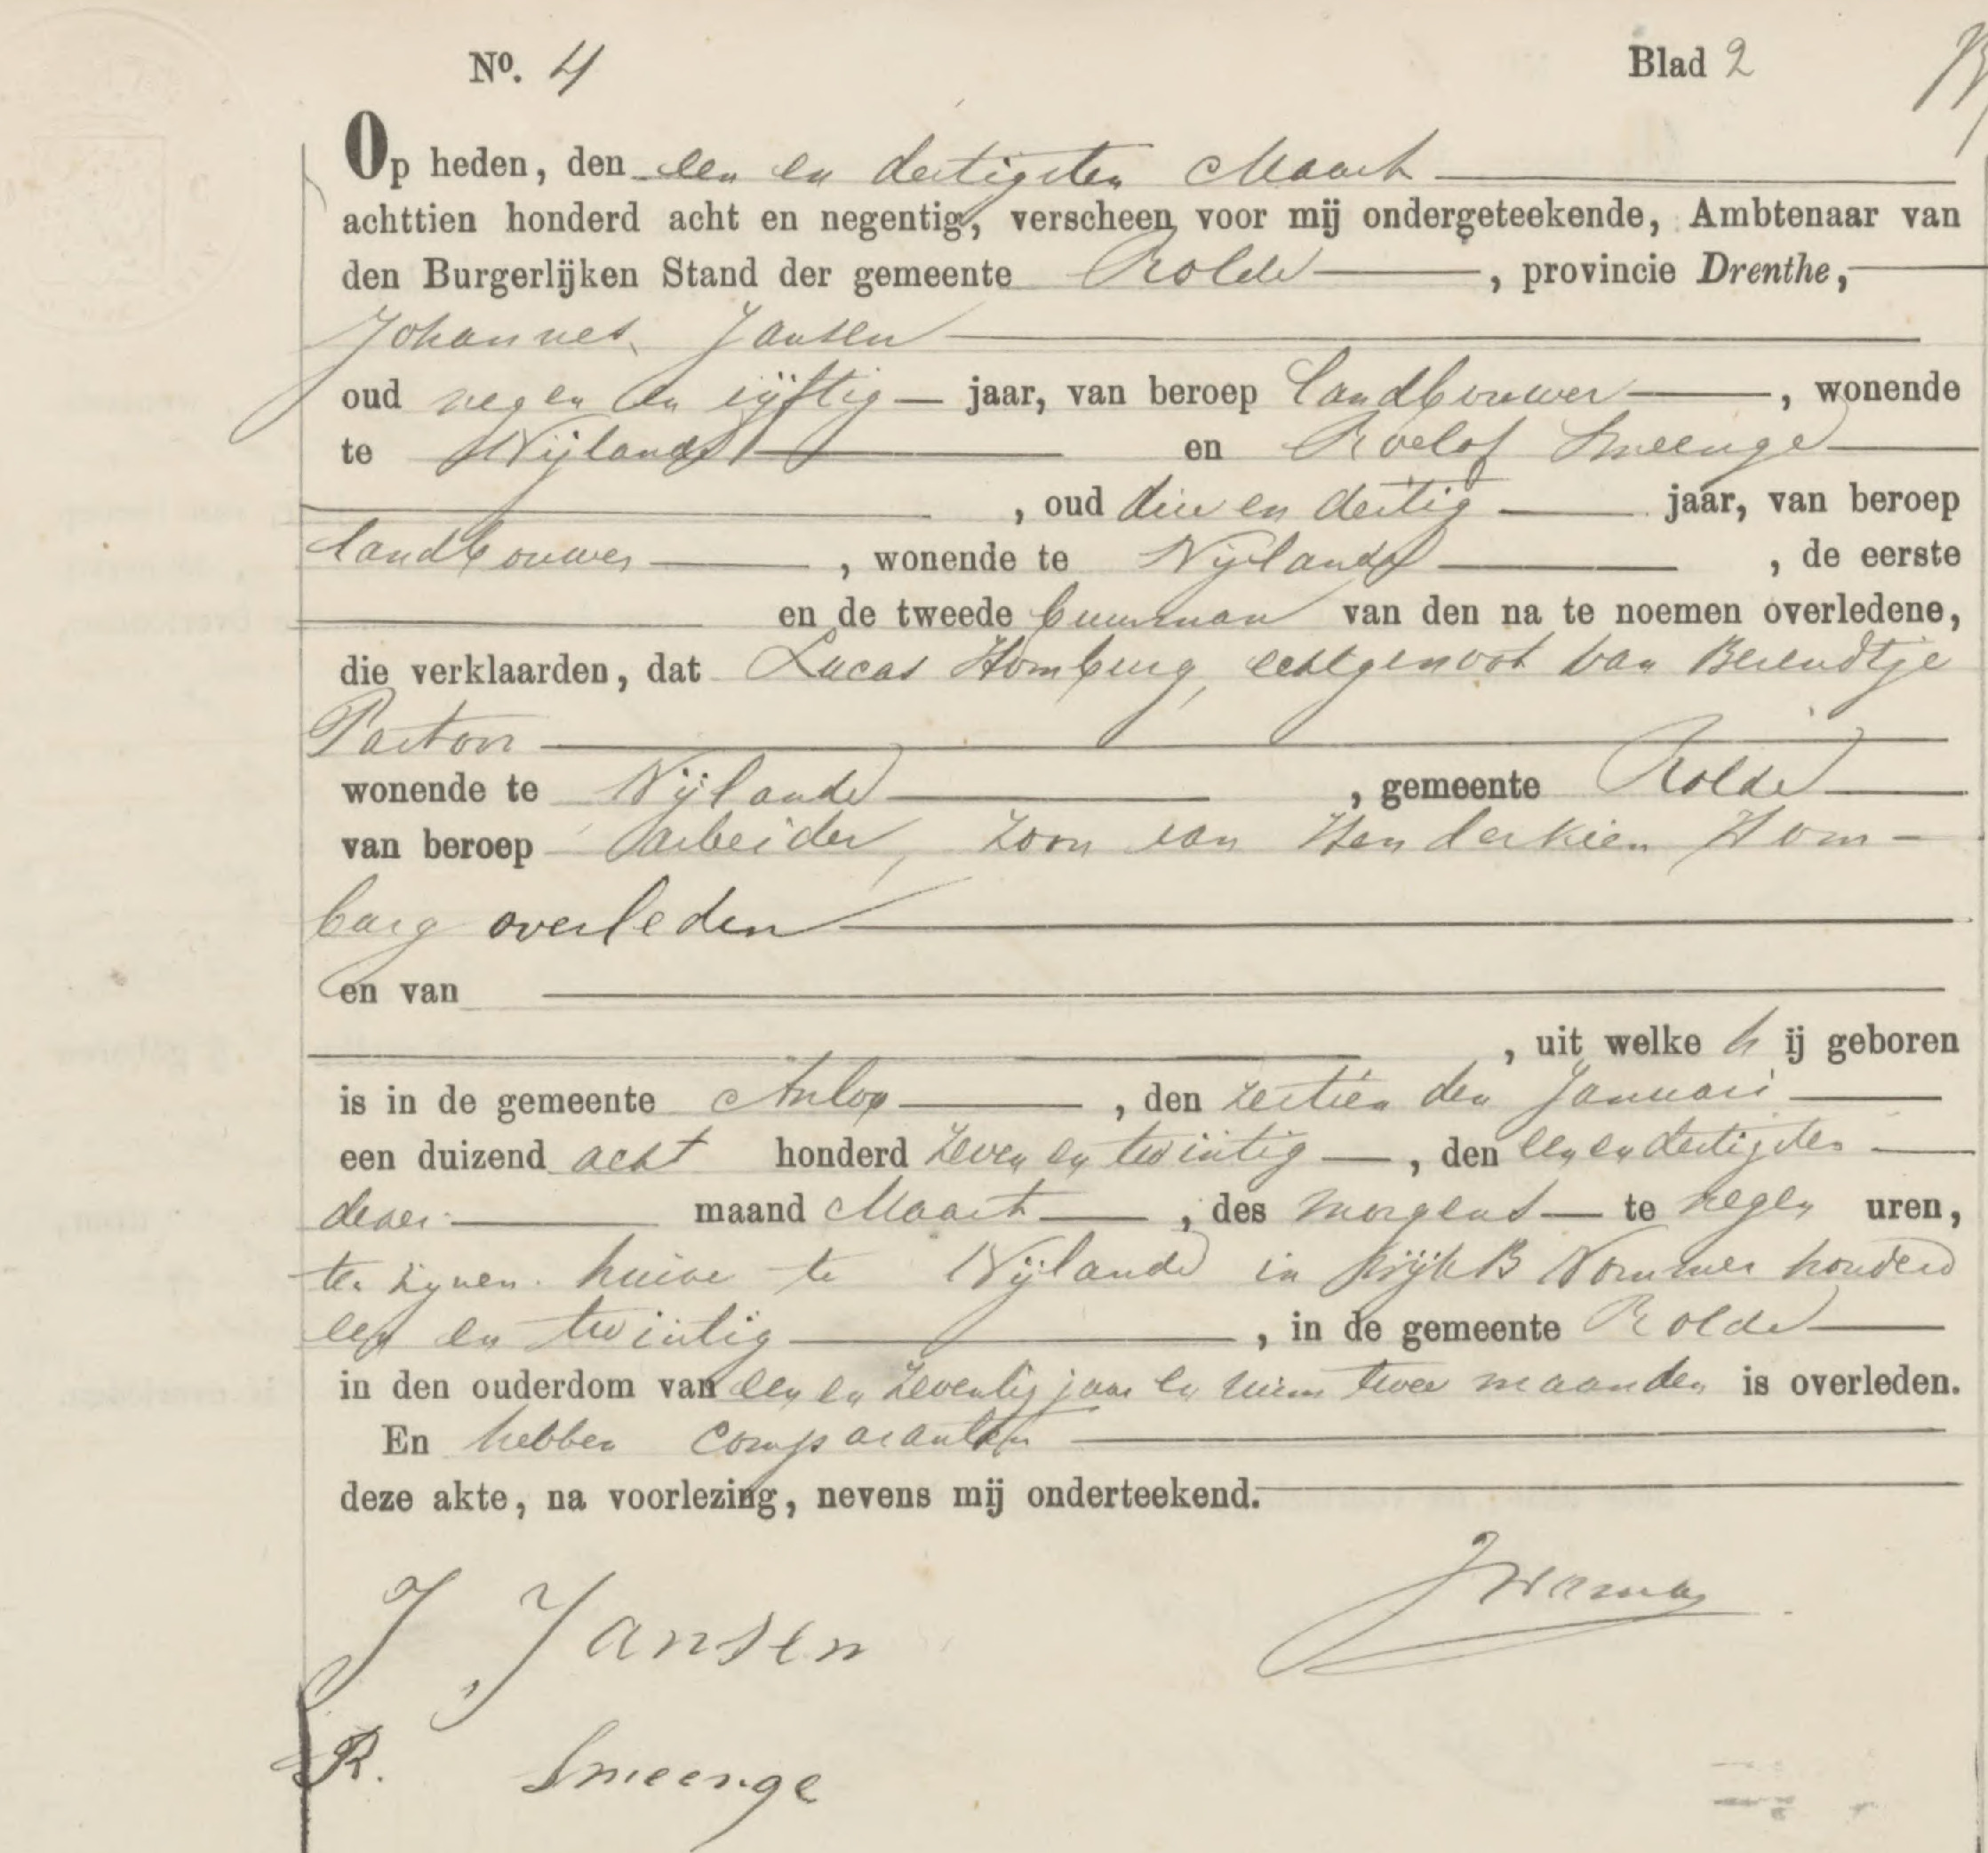 Nº. 4 Blad 2
Op heden, den een en dertigsten Maart
achttien honderd acht en negentig, verscheen voor mij ondergeteekende, Ambtenaar van
den Burgerlijken Stand der gemeente Rolde, provincie Drenthe,
Johannes Jansen
oud negen en vijftig jaar, van beroep landbouwer, wonende
te Nijlande en Roelof Smeenge
, oud drie en dertig jaar, van beroep
landbouwer, wonende te Nijlande, de eerste
en de tweede buurman van den na te noemen overledene,
die verklaarden, dat Lucas Homburg, echtgenoot van Berendtje
Paston
wonende te Nijlande, gemeente Rolde
van beroep arbeider, zoon van Henderkien Hom-
burg overleden
en van
, uit welke h ij geboren
is in de gemeente Anloo, den zestien den Januari
een duizend acht honderd zeven en twintig, den een en dertigsten
dezer maand Maart, des morgens te negen uren,
ten zijnen huize te Nijlande in Wijk B Nommer honderd
een en twintig, in de gemeente Rolde
in den ouderdom van een en zeventig jaar en ruim twee maanden is overleden.
En hebben comparanten
deze akte, na voorlezing, nevens mij onderteekend.
J Jansen
R. Smeenge